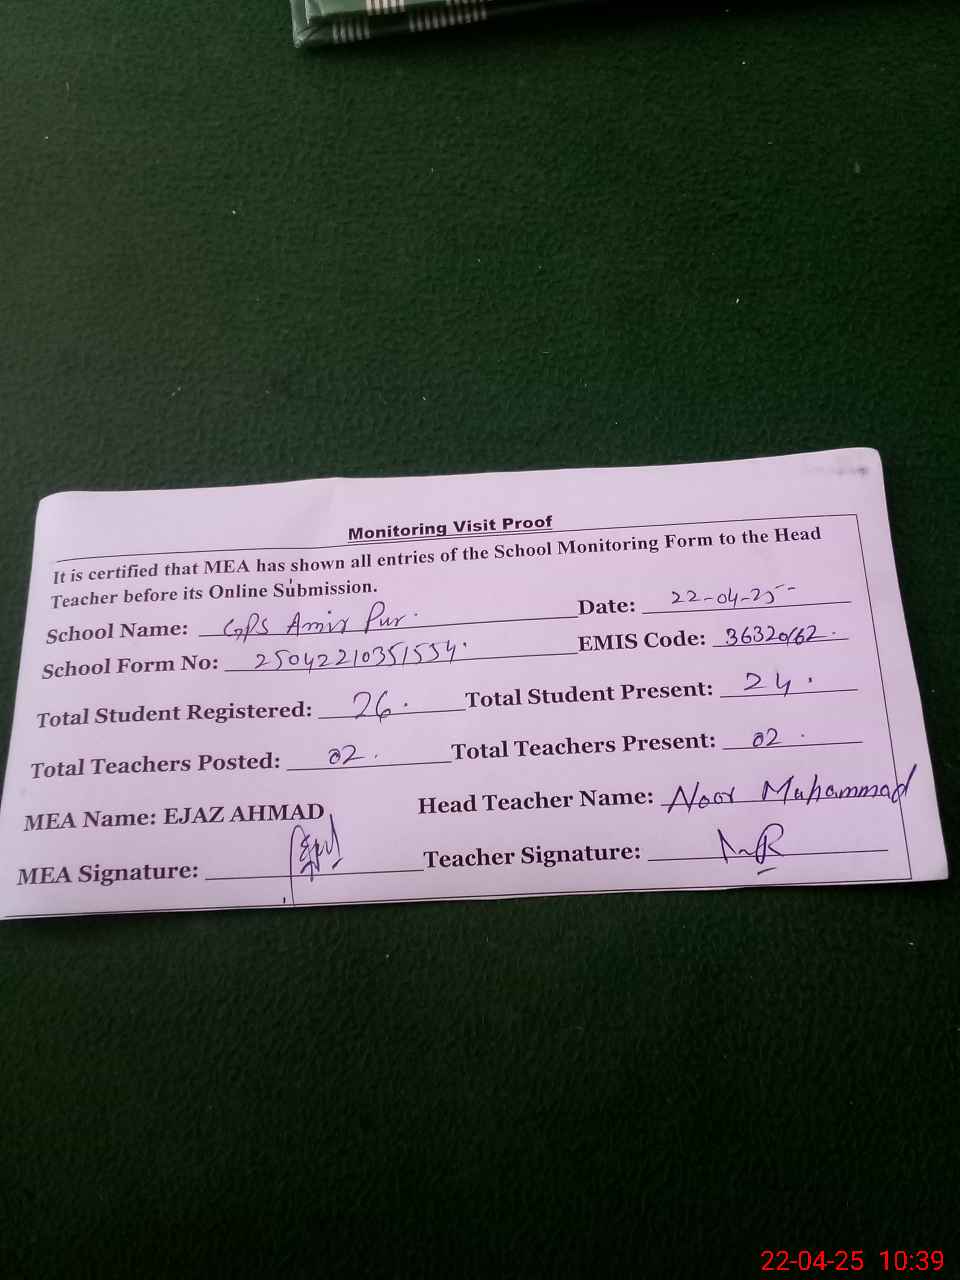 Monitoring Visit Proof
It is certified that MEA has shown all entries of the School Monitoring Form to the Head
Teacher before its Online Submission.
School Name: GPS Amir Pur. Date: 22-04-25
School Form No: 25042210351554. EMIS Code: 36320162.
Total Student Registered: 26. Total Student Present: 24.
Total Teachers Posted: 02. Total Teachers Present: 02.
MEA Name: EJAZ AHMAD Head Teacher Name: Noor Muhammad
MEA Signature: Teacher Signature:
22-04-25 10:39